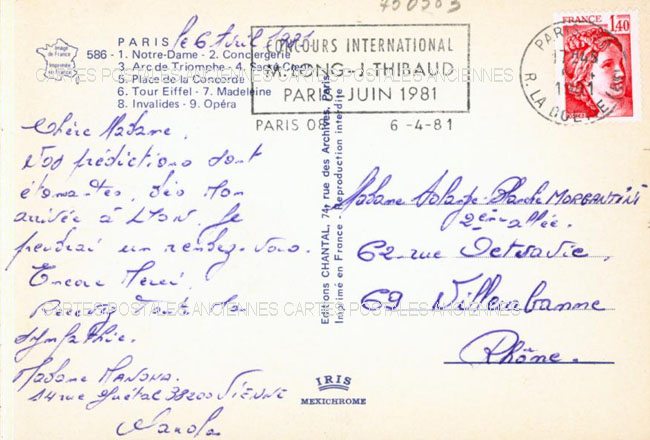 450503
Image
de France
Imprimée
en France
PARIS
le 6 Avril 1981
586 - 1. Notre-Dame - 2. Conciergerie
3. Arc de Triomphe - 4. Sacré-Cœur
5. Place de la Concorde
6. Tour Eiffel - 7. Madeleine
8. Invalides - 9. Opéra
CONCOURS INTERNATIONAL
M. LONG - J. THIBAUD
PARIS JUIN 1981
PARIS 08
6-4-81
FRANCE
1,40
PARIS
17H45
1981
R. LA BOETIE (8e)
Chère Madame,
Vos prédictions sont
étonnantes, Dès Mon
arrivée à LYON. Je
prendrai un rendez-vous.
Encore Merci.
Recevez toute Ma
Sympathie.
Madame
38200 VIENNE
Editions CHANTAL, 74, rue des Archives, Paris
Imprimé en France - Reproduction interdite
Madame Solange-Blanche MORGANTINI
2ème allée.
62-rue
69 Villeurbanne
Rhône.
IRIS
MEXICHROME
CARTES POSTALES ANCIENNES CARTES POSTALES ANCIENNES
CARTES POSTALES ANCIENNES CARTES POSTALES ANCIENNES